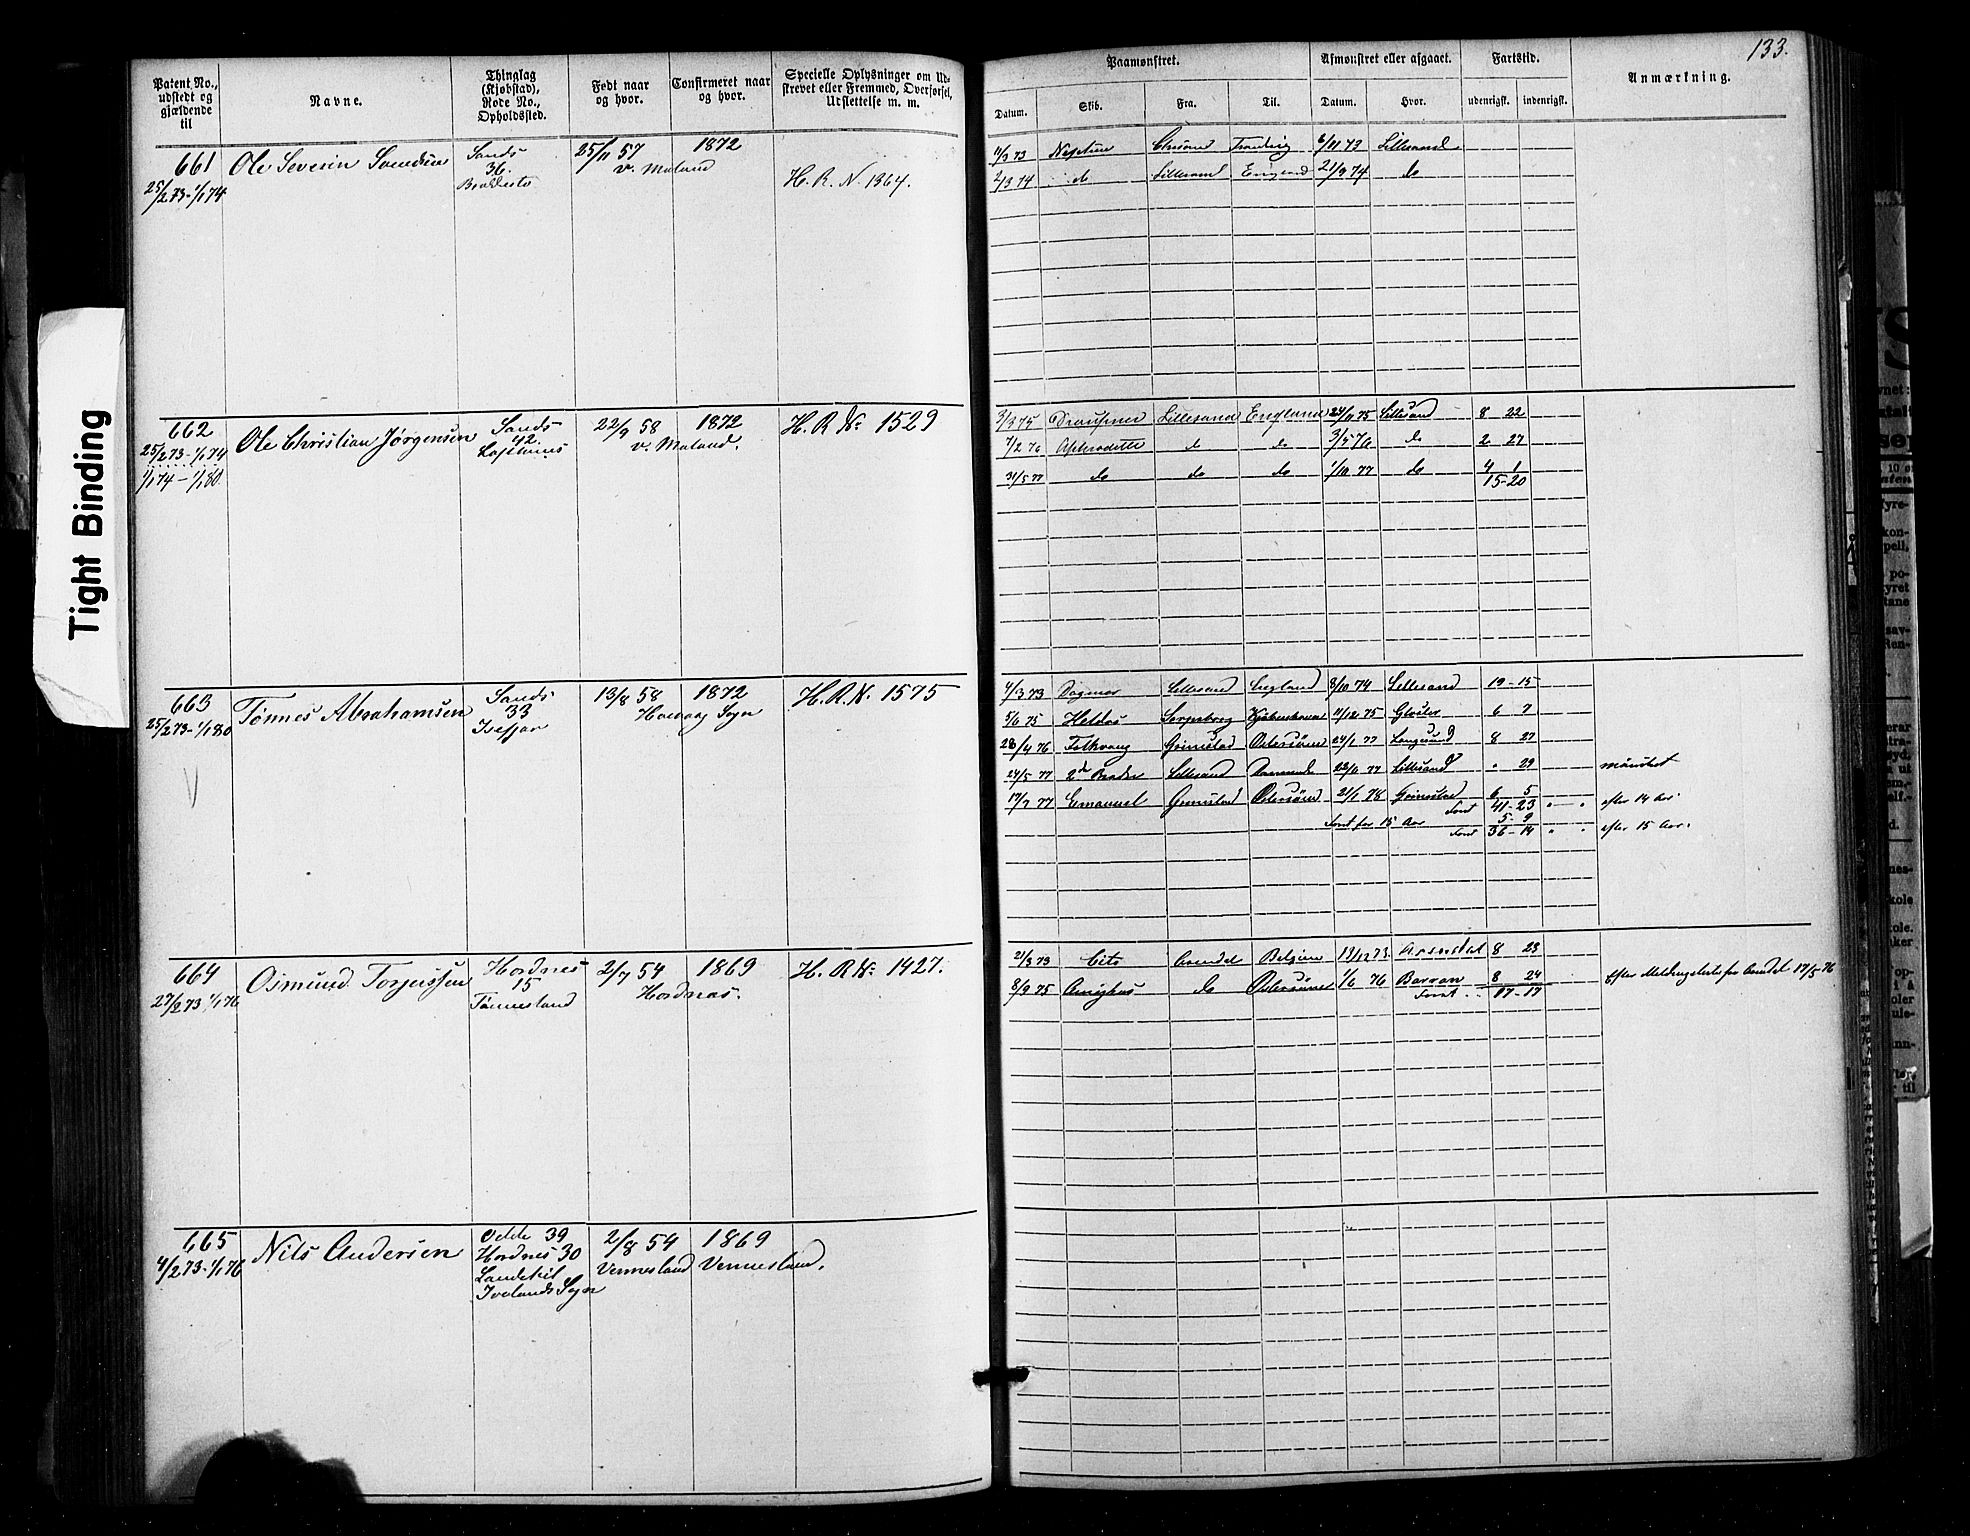 133.
Patent No., udstedt og gjældende til
Navne.
Thinglag (Kjøbstad), Rode No., Opholdssted.
Født naar og hvor.
Confirmeret naar og hvor.
Specielle Oplysninger om Udstrevet eller Fremmed, Overførsel, Udslettelse m. m.
Paamønstret.
Datum.
Skib.
Fra.
Til.
Afmønstret eller afgaaet.
Datum.
Hvor.
Fartstid.
udenrigst.
indenrigst.
Anmærkning.
661
25/2 73-1/1 74
Ole Severin
Sands
36.
25/11 57
v. Moland
1872
H. R. N. 1364.
11/3 73 Neptun 6/11 73 Lillesand
2/3 74 do Lillesand England 21/9 74 do
662
25/2 73-1/1 74
1/1 74 - 1/1 80.
Ole Christian Jørgensen
Sands
42.
22/9 58
v. Moland.
1872
H. R No 1529
3/3 75 Draupner Lillesand England 24/11 75 Lillesand 8 22
7/2 76 Aphrodite do do 3/5 76 do 2 27
31/5 77 do do do 1/10 77 do 4 1
15-20
663
25/2 73-1/1 80
Tønnes Abrahamsen
Sands
33
13/8 58
1872
Høivaag Sogn
H. R. N. 1575
4/3 73 Dagmar Lillesand England 8/10 74 Lillesand 19-15
5/6 75 Sarpsborg Kjøbenhavn 11/12 75 Gloster 6 7
28/4 76 Folkvang Grimstad Østersøen 24/1 77 Langesund 8 27
24/5 77 2de Brødre Lillesand 22/6 77 Lillesand " 29
17/7 77 Emanuel Grimstad Østersøen 21/1 78 Grimstad 6 5
41-23 " " efter 14 Aar
for 15 Aar 5-9
36-14 " " efter 15 Aar.
664
27/2 73 1/1 76
Osmund Torjussen
Hordnes
15
Tønnesland
2/7 54
1869
Hordnæs.
H. R No 1427.
21/3 73 Cito Arendal Belgien 13/12 73 Arendal 8 23
8/9 75 do Østersøen 1/6 76 8 24
17-17
Efter Meldingsliste fra Arendal 17/5 76
665
4/2 73-1/1 76
Nils Andersen
Odde 39
Hordnes 30
Ivelands Sogn
2/8 54
Vennesland
1869
Vennesland.
Tight Binding